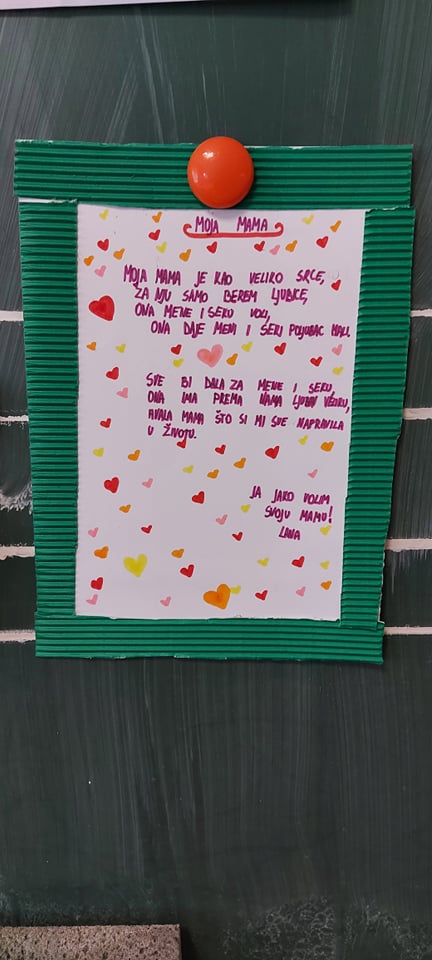 MOJA MAMA
MOJA MAMA JE KAO VELIKO SRCE,
ZA NJU SAMO BEREM LJUBICE,
ONA MENE I SEKU VOLI,
ONA DAJE MENI I SEKI POLJUBAC MALI.
SVE BI DALA ZA MENE I SEKU,
ONA IMA PREMA NAMA LJUBAV VELIKU,
HVALA MAMA ŠTO SI MI SVE NAPRAVILA
U ŽIVOTU.
JA JAKO VOLIM
SVOJU MAMU!
LANA